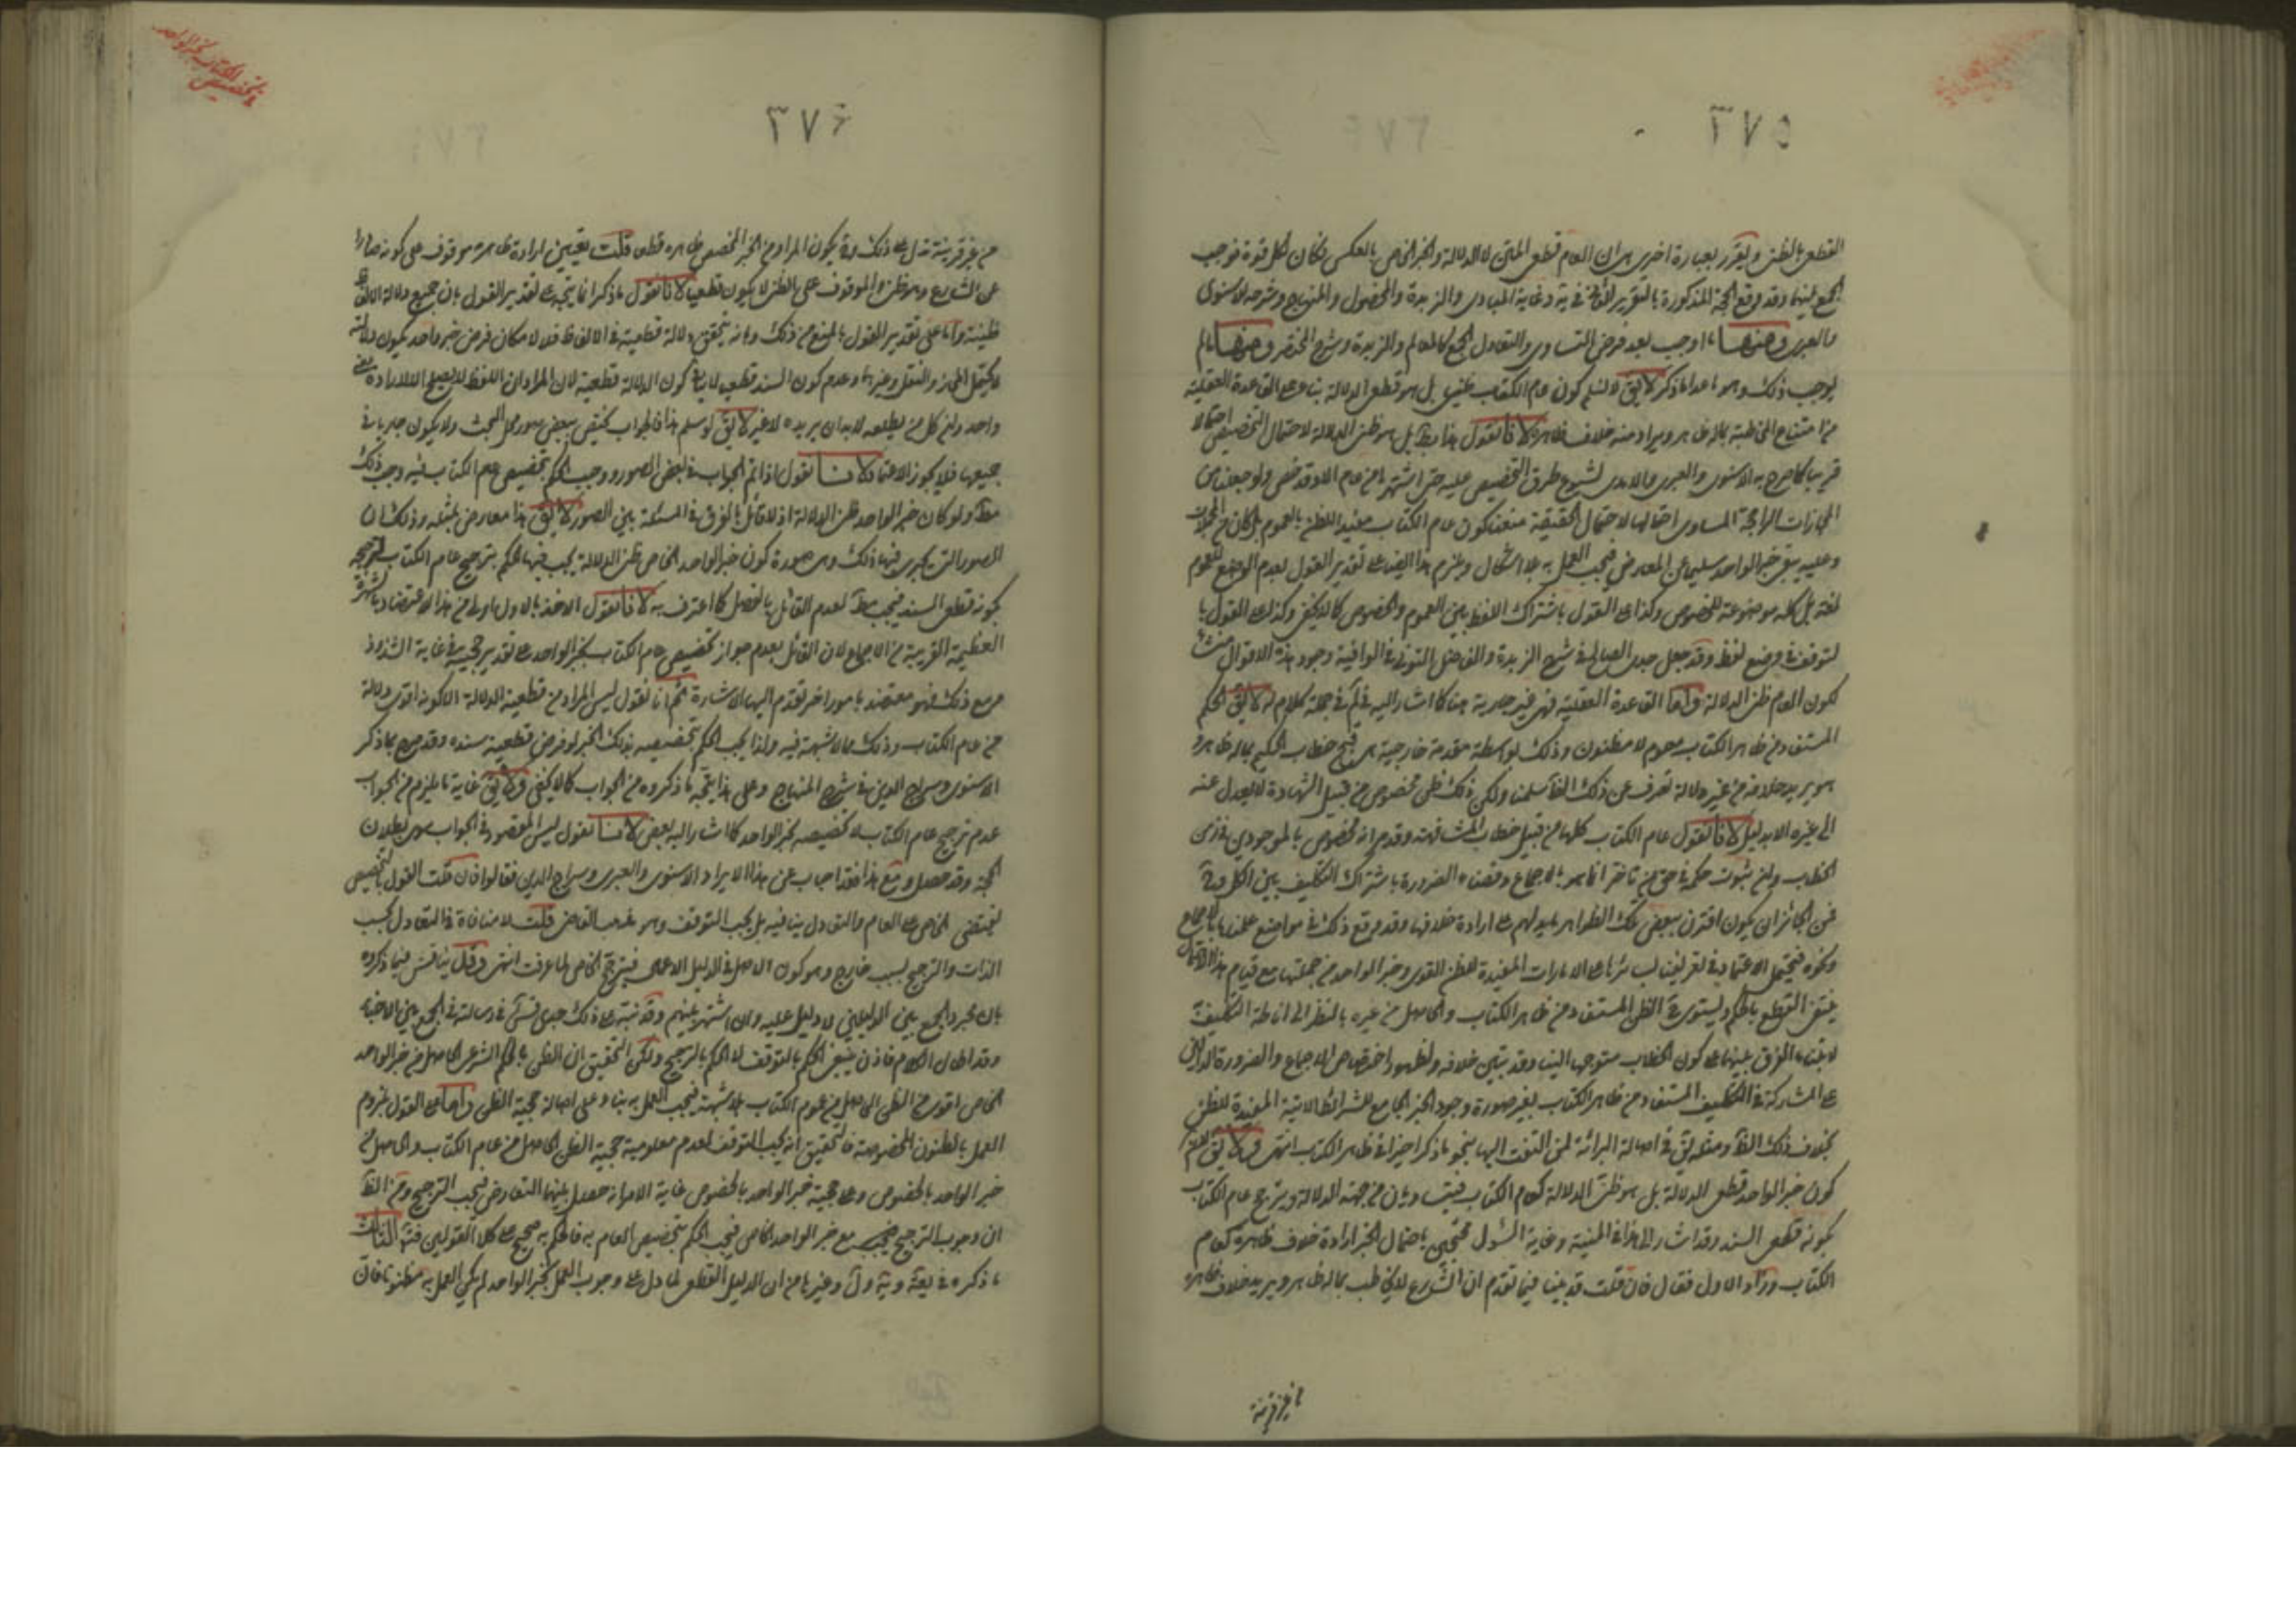 ٣٧٥
القطع بالظن ويقرر بعبارة اخرى هى ان العام قطعى المتن لا الدلالة والخبر الخاص بالعكس فكان لكل قوة فوجب
الجمع بينهما وقد وقع الحجة المذكورة بالتقرير فى يه وغاية المبادى والزبدة والمحصول والمنهاج وشرحه للاسنوى
والعبرى ومنها ما اوجب بعد فرض التساوى والتعادل الجمع كالمعالم والزبدة وشرح المختصر ومنها ما لم
يوجب ذلك وهو ما عدا ما ذكر لا يق لا نسلم كون عام الكتاب ظنيا بل هو قطعى الدلالة بناء على القاعدة العقلية
من امتناع المخاطبة بما له ظاهر ويراد منه خلاف ظاهره لانا نقول هذا بط بل هو ظنى الدلالة لاحتمال التخصيص احتمالا
قريبا كما صرح به الاسنوى والعبرى والامدى لشيوع طرق التخصيص عليه حتى اشتهر ما من عام الا وقد خص ولو جعلناه من
المجازات الراجحة المساوى احتمالها لاحتمال الحقيقة منعنا كون عام الكتاب مفيدا للظن بالعموم بل كان من المجملات
وعليه يبقى خبر الواحد سليما عن المعارض فيجب العمل به بلا اشكال ويلزم هذا ايضا على تقدير القول بعدم الوضع للعموم
لغة بل كله موضوعة للخصوص وكذا على القول باشتراك اللفظ بين العموم والخصوص كما لا يخفى وكذا على القول با
لتوقف فى وضع لفظ وقد جعل جدى الصالح فى شرح الزبدة والفاضل التونى فى الوافية وجود هذه الاقوال منشأ
لكون العام ظنى الدلالة واما القاعدة العقلية فهى غير جارية هنا كما اشار اليه فى لم فى جملة كلام له لا يق الحكم
المستفاد من ظاهر الكتاب معلوم لا مظنون وذلك بواسطة مقدمة خارجية هى قبح خطاب الحكيم بما له ظاهر و
هو يريد خلافه من غير دلالة تصرف عن ذلك الظاهر سلمنا ولكن ذلك ظن مخصوص من قبيل الشهادة لا يعدل عنه
الى غيره الا بدليل لانا نقول عام الكتاب كلها من قبيل خطاب المشافهة وقد مر انه مخصوص بالموجودين فى زمن
الخطاب وان ثبوت حكمه فى حق من تاخر انما هو بالاجماع وقضاء الضرورة باشتراك التكليف بين الكل وح
فمن الجائز ان يكون اقترن ببعض تلك الظواهر ما يدلهم على ارادة خلافها وقد وقع ذلك فى مواضع علمناها بالاجماع
ونحوه فيحتمل الاعتماد فى تعريفنا لسائرها على الامارات المفيدة للظن القوى وخبر الواحد من جملتها مع قيام هذا الاحتمال
ينتفى القطع بالحكم ويستوى ح الظن المستفاد من ظاهر الكتاب والحاصل من غيره بالنظر الى اناطة التكليف به
لابتناء الفرق بينهما على كون الخطاب متوجها الينا وقد تبين خلافه ولظهور اختصاص الاجماع والضرورة الدالين
على المشاركة فى التكليف المستفاد من ظاهر الكتاب بغير صورة وجود الخبر الجامع للشرائط الاتية المفيدة للظن
بخلاف ذلك الظاهر ومثله يق فى اصالة البرائة لمن التفت اليها بنحو ما ذكر اخيرا فى ظاهر الكتاب انتهى ولا يق لا نسلم
كون خبر الواحد قطعى الدلالة بل هو ظنى الدلالة كعام الكتاب فيتساويان من جهة الدلالة ويترجح عام الكتاب
بكونه قطعى السند وقد اشار الى هذا فى المنية وغاية السئول محتجين باحتمال الخبر ارادة خلاف ظاهره كعام
الكتاب وزاد الاول فقال فان قلت قد بينا فيما تقدم ان الشارع لا يخاطب بما له ظاهر ويريد خلاف ظاهره
من غير قرينة
٣٧٦
من غير قرينة تدل على ذلك وح يكون المراد من الخبر المخصص ظاهره قطعا قلت تعيين ارادة ظاهره موقوف على كونه صادرا
عن الشارع وهو ظنى والموقوف على الظنى لا يكون قطعيا لانا نقول ما ذكر انما يتجه على تقدير القول بان جميع دلالة الالفاظ
ظنية واما على تقدير القول بالمنع من ذلك وبانه يتحقق دلالة قطعية فى الالفاظ فلا لامكان فرض خبر واحد يكون دلالته
لا يحتمل المجاز والنقل وغيرهما وعدم كون السند قطعيا لا ينافى كون الدلالة قطعية لان المراد ان اللفظ لا يصلح الا لارادة معنى
واحد وان كل من يطلقه لا بد ان يريده لا غير لا يق لو سلم هذا فالجواب يختص ببعض صور محل البحث ولا يكون جاريا فى
جميعها فلا يجوز الاعتماد لانا نقول اذا تم الجواب فى بعض الصور ووجب الحكم بتخصيص عام الكتاب فيه وجب ذلك
مط ولو كان خبر الواحد ظنى الدلالة اذ لا قائل بالفرق فى المسئلة بين الصور لا يق هذا معارض بمثله وذلك ان
الصور التى يجرى فيها ذلك وهى صورة كون خبر الواحد الخاص ظنى الدلالة يجب فيها الحكم بترجيح عام الكتاب لترجيحه
بكونه قطعى السند فيجب مط لعدم القائل بالفصل كما اعترف به لانا نقول الاخذ بالاول اولى من هذا لاعتضاده بالشهرة
العظيمة القريبة من الاجماع لان القائل بعدم جواز تخصيص عام الكتاب بخبر الواحد على تقدير حجيته فى غاية الشذوذ
ومع ذلك فهو معتضد بامور اخر تقدم اليها الاشارة ثم انا نقول ليس المراد من قطعية الدلالة الا كونه اقوى دلالة
من عام الكتاب وذلك مما لا شبهة فيه ولذا يجب الحكم بتخصيصه بذلك الخبر لو فرض قطعية سنده وقد صرح بما ذكر
الاسنوى وسراج الدين فى شرح المنهاج وعلى هذا يتجه ما ذكروه من الجواب كما لا يخفى ولا يق غاية ما يلزم من الجواب
عدم ترجيح عام الكتاب لا تخصيصه بخبر الواحد كما اشار اليه بعض لانا نقول ليس المقصود فى الجواب سوى بطلان
الحجة وقد حصل ومع هذا فقد اجاب عن هذا الايراد الاسنوى والعبرى وسراج الدين فقالوا فان قلت القول بالتخصيص
يقتضى الخاص على العام والتعادل ينافيه بل يجب التوقف وهو مذهب القاضى قلت لا منافاة فالتعادل بحسب
الذات والترجيح بسبب خارج وهو كون الاصل فى الدليل الاعمال فيترجح الخاص لما عرفت انتهى وقد يناقش فيما ذكروه
بان مجرد الجمع بين الدليلين لا دليل عليه وان اشتهر بينهم وقد نبه على ذلك جدى قدس سره فى رسالته فى الجمع بين الاخبار
وقد اطال الكلام فاذن ينبغى الحكم بالتوقف لا الحكم بالترجيح ولكن التحقيق ان الظن بالحكم الشرعى الحاصل من خبر الواحد
الخاص اقوى من الظن الحاصل من عموم الكتاب بلا شبهة فيجب العمل به بناء على اصالة حجية الظن واما على القول بلزوم
العمل بالظنون المخصوصة فالتحقيق انه يجب التوقف لعدم معلومية حجية الظن الحاصل من عام الكتاب والحاصل من
خبر الواحد بالخصوص وعلى حجية خبر الواحد بالخصوص غاية الامر انه حصل بينهما التعارض فيجب الترجيح ومن الظاهر
ان وجوب الترجيح يجب مع خبر الواحد الخاص فيجب الحكم بتخصيص العام به فالحكم به صحيح على كلا القولين فتدبر الثالث
ما ذكره فى يعة ويه ول وغيرها من ان الدليل القطعى لما دل على وجوب العمل بخبر الواحد لم يكن العمل به مظنونا فان